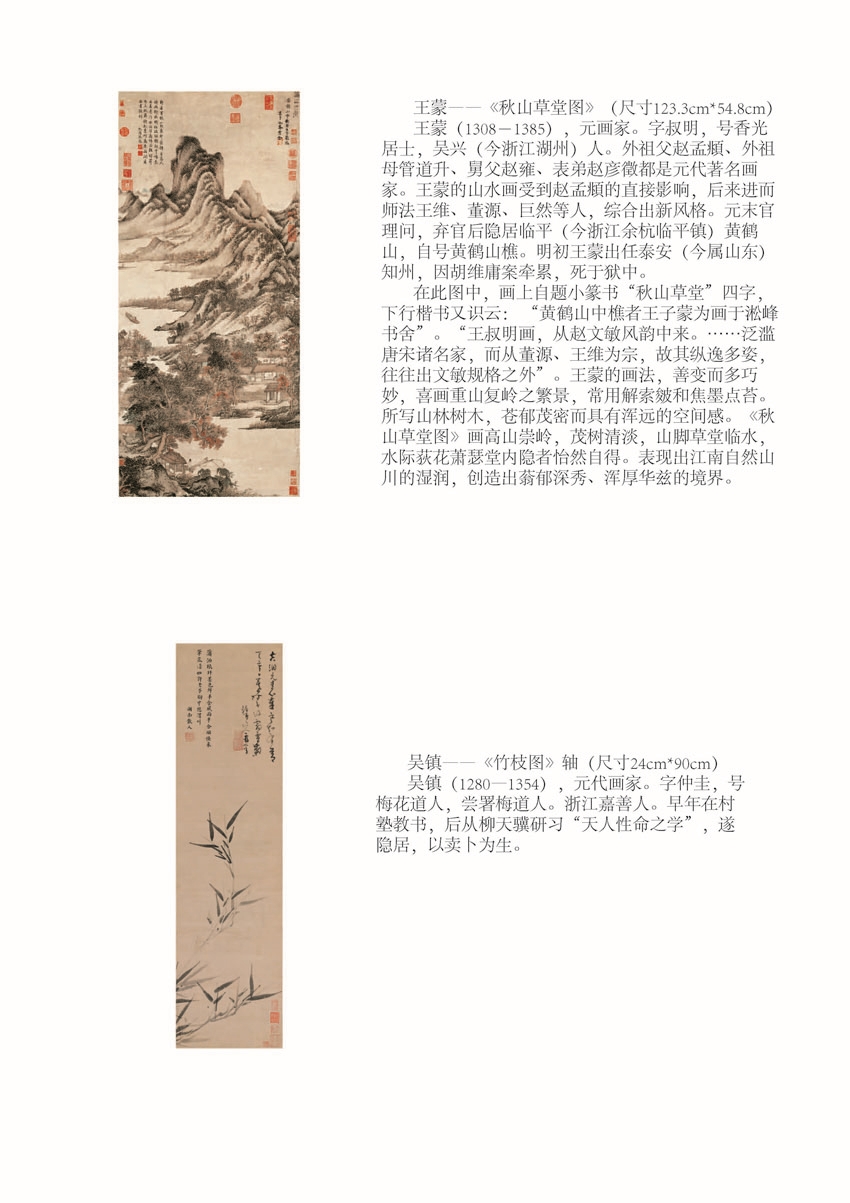 王蒙——《秋山草堂图》（尺寸123.3cm*54.8cm）
王蒙（1308－1385），元画家。字叔明，号香光
居士，吴兴（今浙江湖州）人。外祖父赵孟頫、外祖
母管道升、舅父赵雍、表弟赵彦徵都是元代著名画
家。王蒙的山水画受到赵孟頫的直接影响，后来进而
师法王维、董源、巨然等人，综合出新风格。元末官
理问，弃官后隐居临平（今浙江余杭临平镇）黄鹤
山，自号黄鹤山樵。明初王蒙出任泰安（今属山东）
知州，因胡维庸案牵累，死于狱中。
在此图中，画上自题小篆书“秋山草堂”四字，
下行楷书又识云：“黄鹤山中樵者王子蒙为画于淞峰
书舍”。“王叔明画，从赵文敏风韵中来。……泛滥
唐宋诸名家，而从董源、王维为宗，故其纵逸多姿，
往往出文敏规格之外”。王蒙的画法，善变而多巧
妙，喜画重山复岭之繁景，常用解索皴和焦墨点苔。
所写山林树木，苍郁茂密而具有浑远的空间感。《秋
山草堂图》画高山崇岭，茂树清淡，山脚草堂临水，
水际荻花萧瑟堂内隐者怡然自得。表现出江南自然山
川的湿润，创造出蓊郁深秀、浑厚华兹的境界。
吴镇——《竹枝图》轴（尺寸24cm*90cm）
吴镇（1280—1354），元代画家。字仲圭，号
梅花道人，尝署梅道人。浙江嘉善人。早年在村
塾教书，后从柳天骥研习“天人性命之学”，遂
隐居，以卖卜为生。